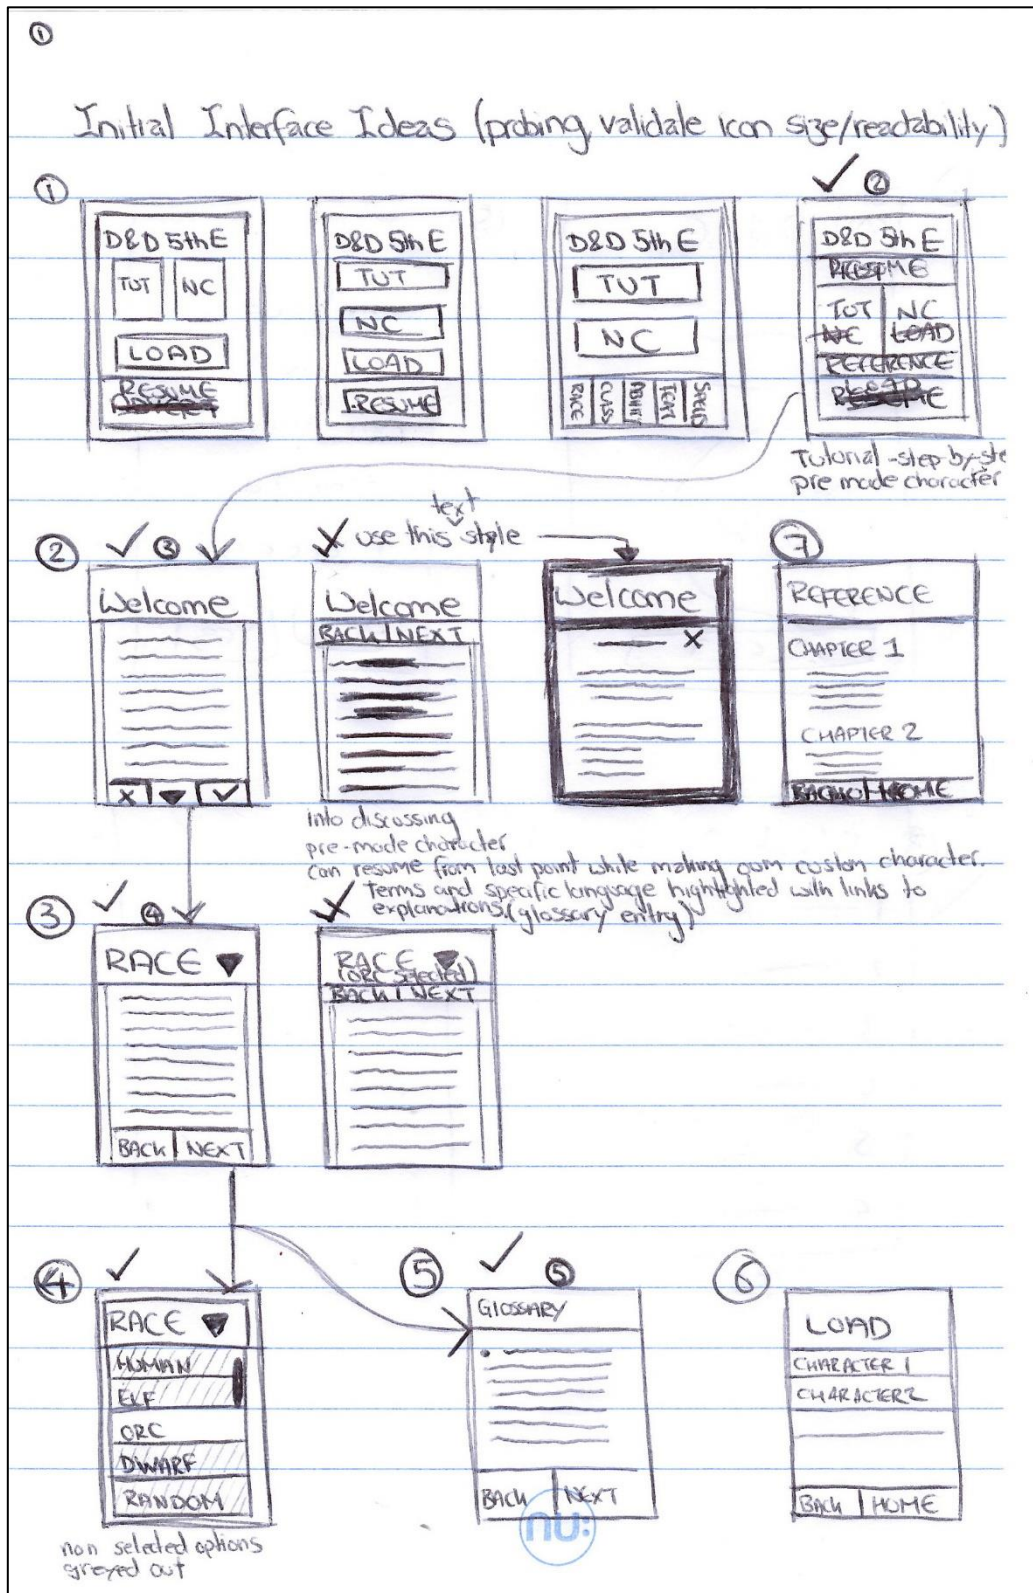 ①
Initial Interface Ideas (probing, validate icon size/readability)
①
D&D 5th E
TUT NC
LOAD
RESUME
D&D 5th E
TUT
NC
LOAD
RESUME
D&D 5th E
TUT
NC
RACE CLASS
✓ ②
D&D 5th E
RESUME
TUT NC
NC LOAD
REFERENCE
LOAD
RESUME
Tutorial -step-by-ste
pre made character
② ✓ ③
Welcome
X ▼ ✓
text
X use this style
Welcome
BACK | NEXT
Welcome
X
⑦
REFERENCE
CHAPTER 1
CHAPTER 2
HOME
into discussing
pre-made character
can resume from last point while making own custom character.
terms and specific language highlighted with links to
explanations. (glossary entry)
③ ✓ ④
RACE ▼
BACK | NEXT
RACE ▼
(ORC selected)
BACK | NEXT
④ ✓
RACE ▼
HUMAN
ELF
ORC
DWARF
RANDOM
non selected options
greyed out
⑤ ✓ ⑤
GlOSSARY
BACK | NEXT
nu:
⑥
LOAD
CHARACTER 1
CHARACTER 2
BACK | HOME